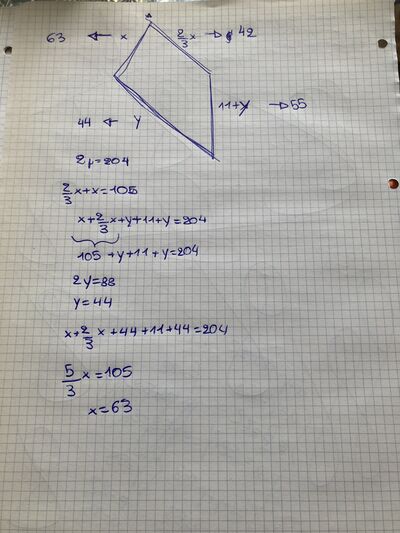 63 ← x 2/3 x → 42
11+y → 55
44 ← y
2p=204
2/3 x+x=105
x+2/3 x+y+11+y=204
105+y+11+y=204
2y=88
y=44
x+2/3 x+44+11+44=204
5/3 x=105
x=63